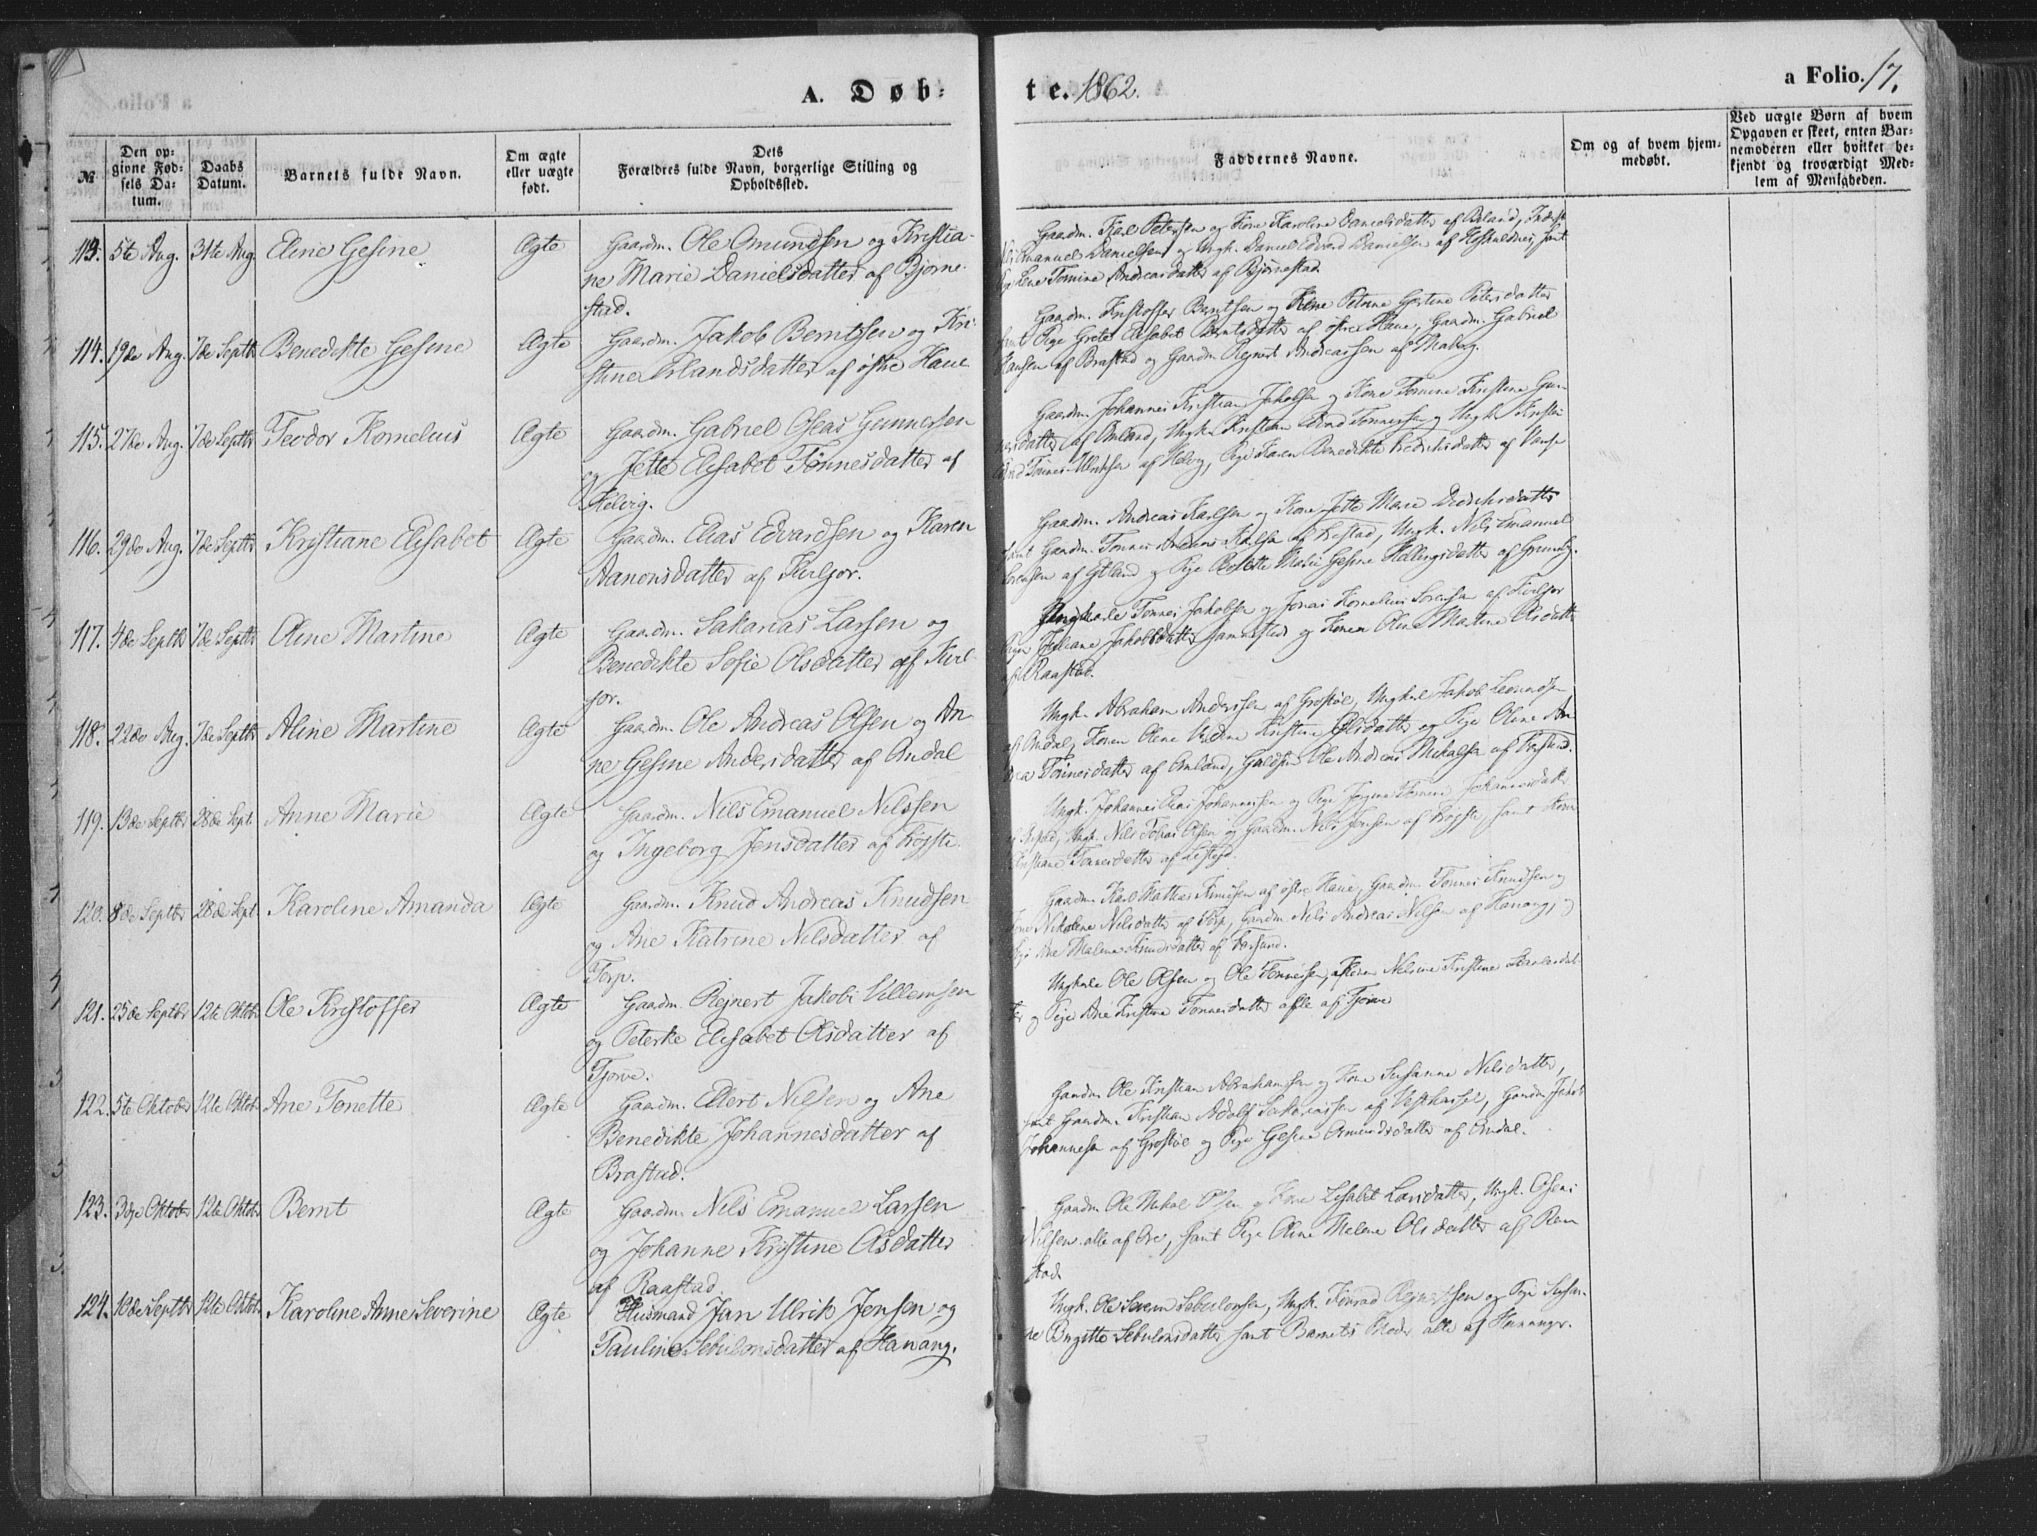 A. Døb-
te. 1862.
a Folio. 17.
№
Den op-
givne Fød-
sels Da-
tum.
Daabs
Datum.
Barnets fulde Navn.
Om ægte
eller uægte
født.
Dets
Forældres fulde Navn, borgerlige Stilling og
Opholdssted.
Faddernes Navne.
Om og af hvem hjem-
medøbt.
Ved uægte Børn af hvem
Opgaven er skeet, enten Bar-
nemoderen eller hvilket be-
kjendt og troværdigt Med-
lem af Menigheden.
113. 5te Aug. 31te Aug. Eline Gesine Ægte Gaardm. Ole Omundsen og Kristia-
ne Marie Danielsdatter af Bjørne-
stad.
Gaardm. Karoline Danielsdatter af
Emanuel Danielsen og Ungk. Daniel Edvard Danielsen af
Lene Tomine Andreasdatter af Bjørnestad
114. 19de Aug. 7de Septbr Benedikte Gesine Ægte Gaardm. Jakob Berntsen og Kri-
stine Erlandsdatter af østre Haue
Gaardm. Kristoffer Berntsen og Kone Petrine Gjertine Petersdatter
samt Pige Grete Elisabet Berntsdatter af østre Haue, Gaardm. Gabriel
Hansen af Brastad og Gaardm Rejnert Andreassen af Maberg.
115. 27de Aug. 7de Septbr Teodor Kornelius Ægte Gaardm. Gabriel Oseas Gunnersen
og Jette Elisabet Tønnesdatter af
Helvig.
Gaardm. Johannes Kristian Jakobsen og Kone Tomine Kristine Gun-
nersdatter af Omland, Ungk. Kristian Tønnessen og Ungk. Kristi-
af Helvig, Pige Karen Benedikte Fredriksdatter af Vanse
116. 29de Aug. 7de Septbr Kristiane Elisabet Ægte Gaardm. Elias Edvardsen og Karen
Aanonsdatter af Kviljor.
Gaardm. Andreas Karlsen og Kone Jette Marie Didriksdatter
samt Gaardm. Tønnes Andreas Karlsen af Ungk. Nils Emanuel
Sørensen af og Pige Marie Gesine Hellugsdatter af
117. 4de Septbr 7de Septbr Oline Martine Ægte Gaardm. Sakarias Larsen og
Benedikte Sofie Olsdatter af Kvil-
jor.
Ungkarle Tønnes Jakobsen og Jonas Kornelius Sørensen af Kviljor
Pigen Juliane Jakobsdatter sammesteds og Konen Oline Martine Olsdatter
af Raastad.
118. 22de Aug. 7de Septbr Aline Martine Ægte Gaardm. Ole Andreas Olsen og An-
ne Gesine Andersdatter af Omdal
Ungk. Abraham Andersen af Grostøl, Ungkarl Jakob
af Omdal, Konen Oline Kristine Olsdatter og Pige Oline An-
drea Tønnesdatter af Omland, Ole Andreas Mikalsen af Farsund.
119. 13de Septbr 28de Sept. Anne Marie Ægte Gaardm. Nils Emanuel Nilssen
og Ingeborg Jensdatter af Røjste.
Ungk. Johannes Johannessen og Pige Tomine Johannesdatter
Ungk. Nils Tobias Olsen og Gaardm. Nils Jensen af Røjste, samt Kone
Kristiane Tønnesdatter af
120. 8de Septbr 28de Sept. Karoline Amanda Ægte Gaardm. Knud Andreas Knudsen
og Ane Katrine Nilsdatter af
Torp.
Gaardm. Karl Mattias af østre Haue, Gaardm. Tønnes Knudsen og
Kone Nikoline Nilsdatter af Torp, Gaardm Nils Andreas Nilsen af Hanang, og
Pige Ane Malene Knudsdatter af Farsund.
121. 25de Septbr 12te Oktob. Ole Kristoffer Ægte Gaardm. Rejnert Jakobi Villemsen
og Peterke Elisabet Olsdatter af
Tjørve.
Ungkarle Ole Olsen og Ole Tønnessen, Konen Nilsine Kristine
ter og Pige Ane Kristine Tønnesdatter alle af Tjørve
122. 5te Oktober 12te Oktob. Ane Tonette Ægte Gaardm. Ellert Nilsen og Ane
Benedikte Johannesdatter af
Brastad.
Gaardm Ole Kristian Abrahamsen og Kone Susanne Nilsdatter,
samt Gaardm. Kristian Adolf Sakariassen af Vesthassel, Gaardm
Johannesen af Grostøl og Pige Gesine Omundsdatter af Omdal.
123. 3dje Oktober 12te Oktob. Bernt Ægte Gaardm. Nils Emanuel Larsen
og Johanne Kristine Olsdatter
af Raastad
Gaardm Ole Mikal Olsen og Kone Elisabet Larsdatter, Ungk.
Nilsen alle af Ore, samt Pige Oline Malene Olsdatter af Rem-
stad
124. 10de Septbr 12te Oktob. Karoline Anne Severine Ægte Husmand Jan Ulrik Jensen og
Pauline Sebulonsdatter af Hanang.
Ungk. Ole Severin Sebulonsen, Ungk. Konrad Rejnertsen og Pige Susan-
ne Birgitte Sebulonsdatter samt Barnets Moder alle af Hananger.